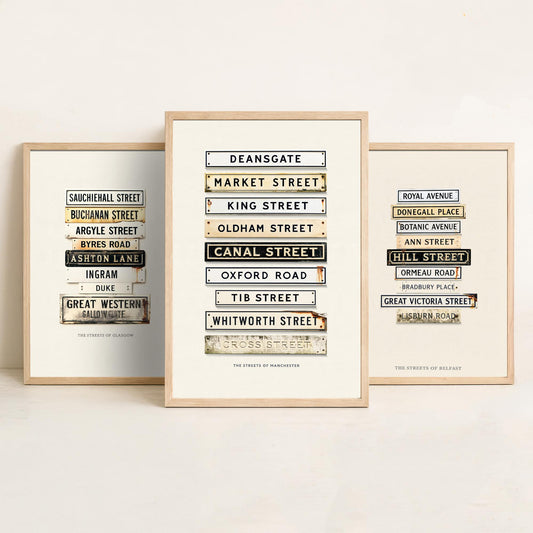 SAUCHIEHALL STREET
BUCHANAN STREET
ARGYLE STREET
BYRES ROAD
ASHTON LANE
INGRAM
DUKE
GREAT WESTERN
GALLOWGATE
THE STREETS OF GLASGOW
DEANSGATE
MARKET STREET
KING STREET
OLDHAM STREET
CANAL STREET
OXFORD ROAD
TIB STREET
WHITWORTH STREET
CROSS STREET
THE STREETS OF MANCHESTER
ROYAL AVENUE
DONEGALL PLACE
BOTANIC AVENUE
ANN STREET
HILL STREET
ORMEAU ROAD
BRADBURY PLACE
GREAT VICTORIA STREET
LISBURN ROAD
THE STREETS OF BELFAST